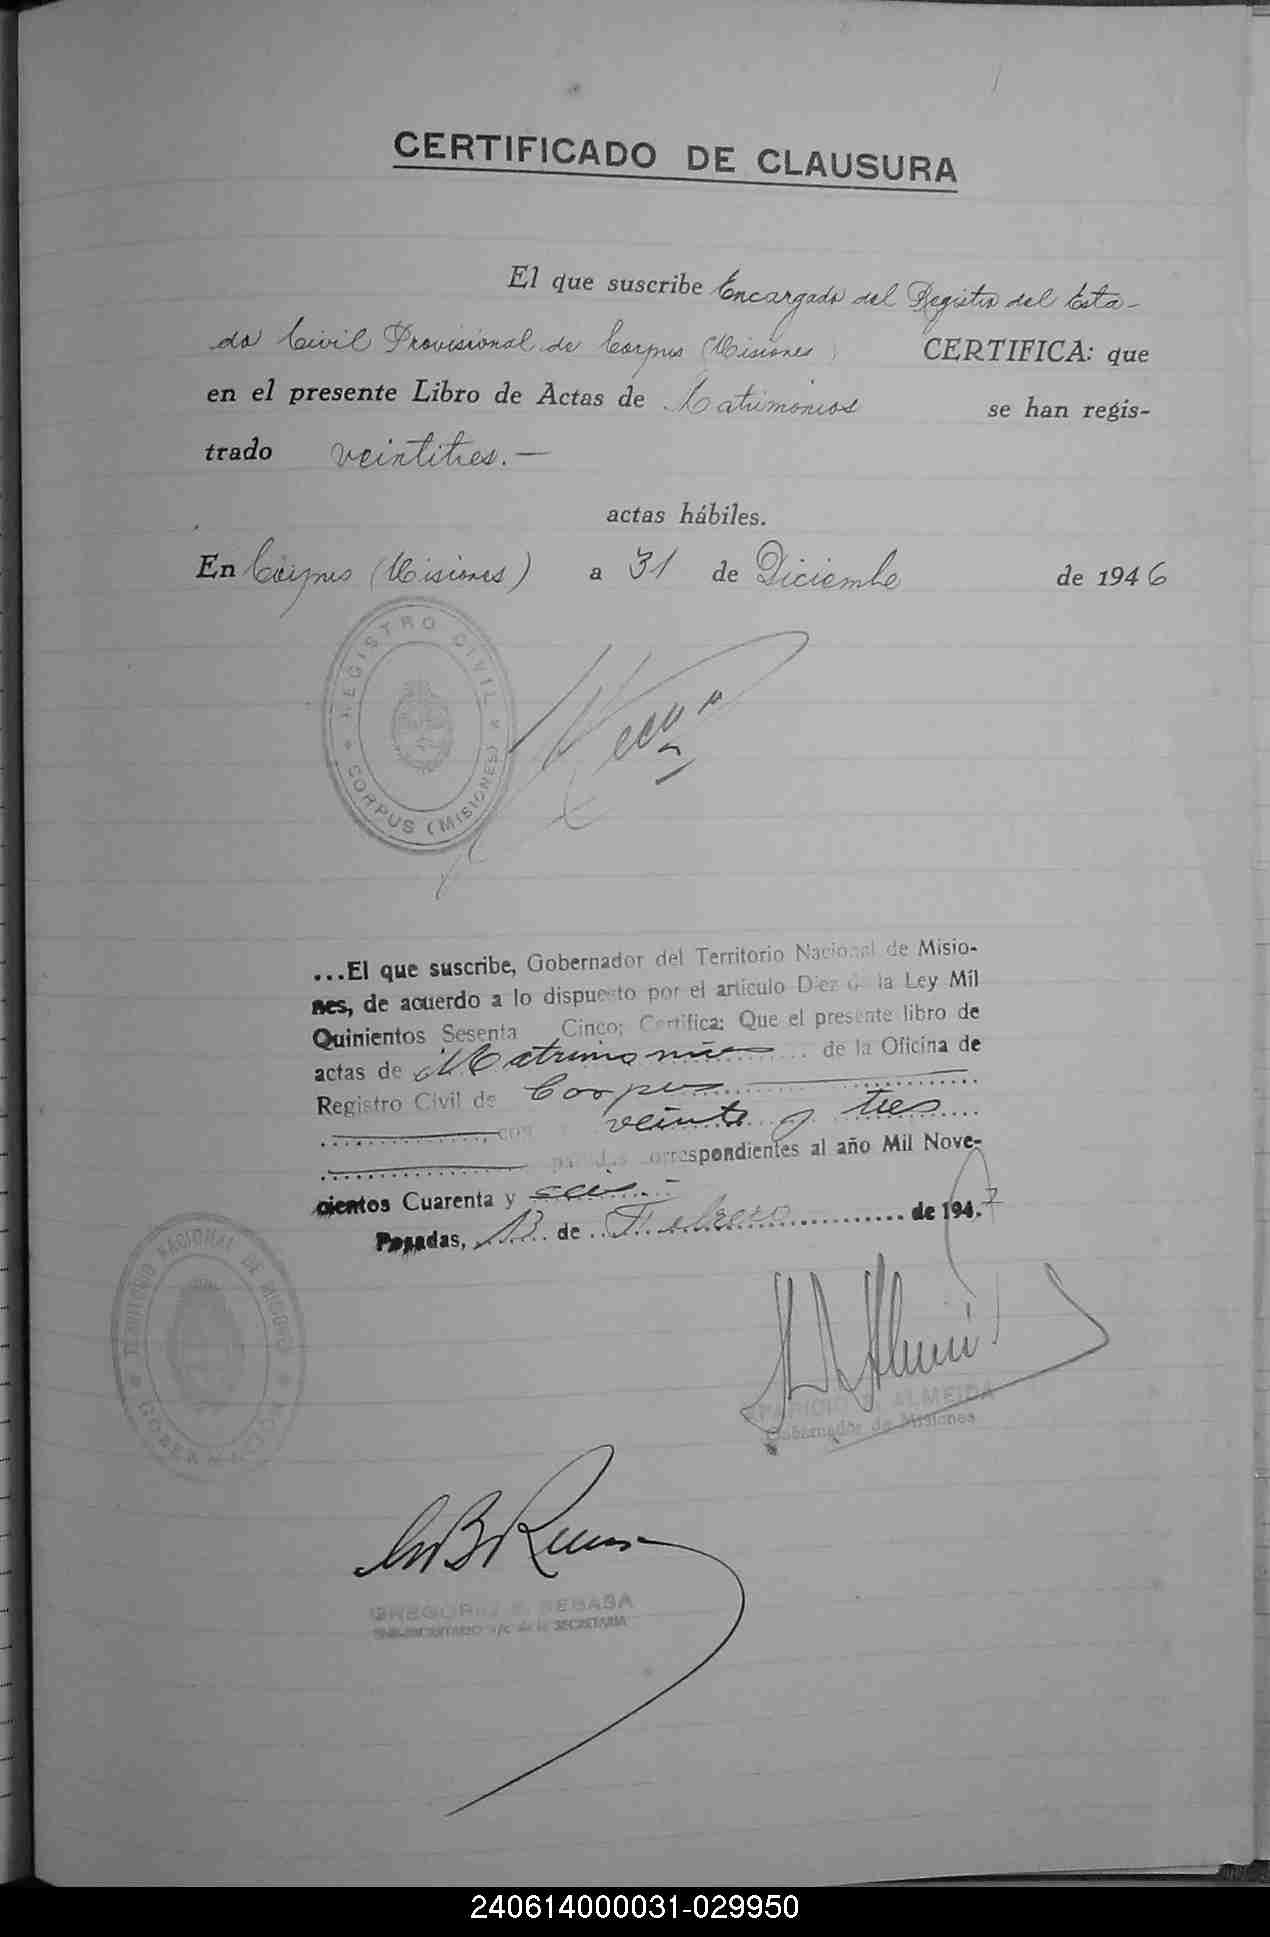 CERTIFICADO DE CLAUSURA
El que suscribe Encargado del Registro del Esta-
do Civil Provisional de Corpus (Misiones) CERTIFICA: que
en el presente Libro de Actas de Matrimonios se han regis-
trado veintitres.—
actas hábiles.
En Corpus (Misiones) a 31 de Diciembre de 1946
REGISTRO CIVIL
CORPUS (MISIONES)
...El que suscribe, Gobernador del Territorio Nacional de Misio-
nes, de acuerdo a lo dispuesto por el artículo Diez de la Ley Mil
Quinientos Sesenta Cinco; Certifica: Que el presente libro de
actas de Matrimonios de la Oficina de
Registro Civil de Corpus
con veinte y tres
correspondientes al año Mil Nove-
cientos Cuarenta y seis.-
Posadas, 13 de Febrero de 1947
TERRITORIO NACIONAL DE MISIONES
GOBERNACIÓN
APARICIO ALMEIDA
Gobernador de Misiones
GREGORIO
SUB-SECRETARIO a/c de la SECRETARIA
240614000031-029950